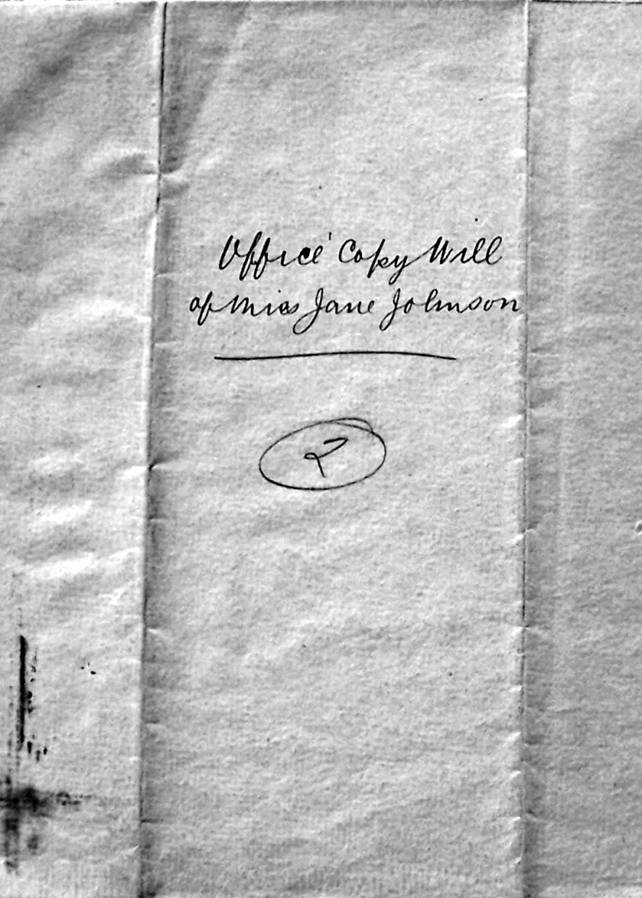 Office Copy Will
of Miss Jane Johnson
2